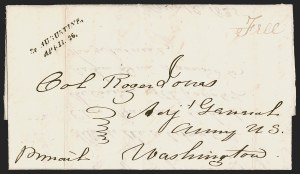 St AUGUSTINE,
APRIL 26.
Free
Col Roger Jones
Adjt General
Army U.S.
Washington